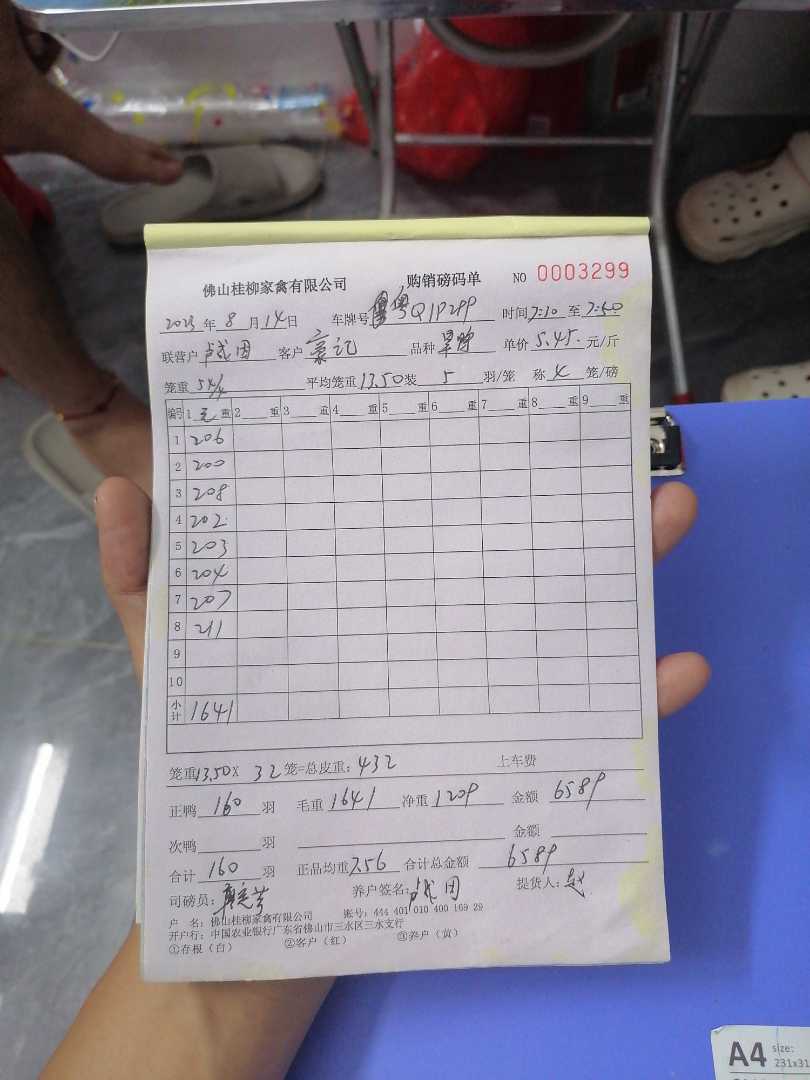 佛山桂柳家禽有限公司 购销磅码单 NO 0003299
2023年8月14日 车牌号 粤Q1P299 时间7:10至7:50
联营户 卢成因 客户 豪记 品种 单价 5.45. 元/斤
笼重 54/4 平均笼重13.50装 5 羽/笼 称 4 笼/磅
编号 1 毛 重 2 重 3 重 4 重 5 重 6 重 7 重 8 重 9 重
1 206
2 200
3 208
4 202
5 203
6 204
7 207
8 211
9
10
小计 1641
笼重13.50X 32笼=总皮重:432 上车费
正鸭 160 羽 毛重 1641 净重 1209 金额 6589
次鸭 羽 金额
合计 160 羽 正品均重7.56 合计总金额 6589
司磅员: 养户签名: 提货人:
户 名:佛山桂柳家禽有限公司 账号:444 401 010 400 169 29
开户行:中国农业银行广东省佛山市三水区三水支行
①存根(白) ②客户(红) ③养户(黄)
A4 size:
231x31